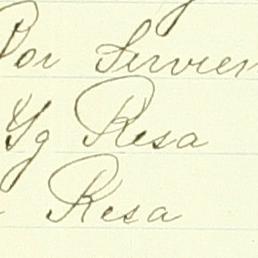 Por Servien
Yg Resa
Resa